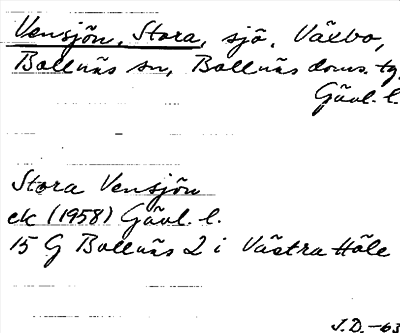 Vensjön, Stora, sjö, Växbo,
Bollnäs sn, Bollnäs doms. tg,
Gävl. l.
Stora Vensjön
ek (1958) Gävl. l.
15 G Bollnäs 2 i Västra Höle
J.D.-63